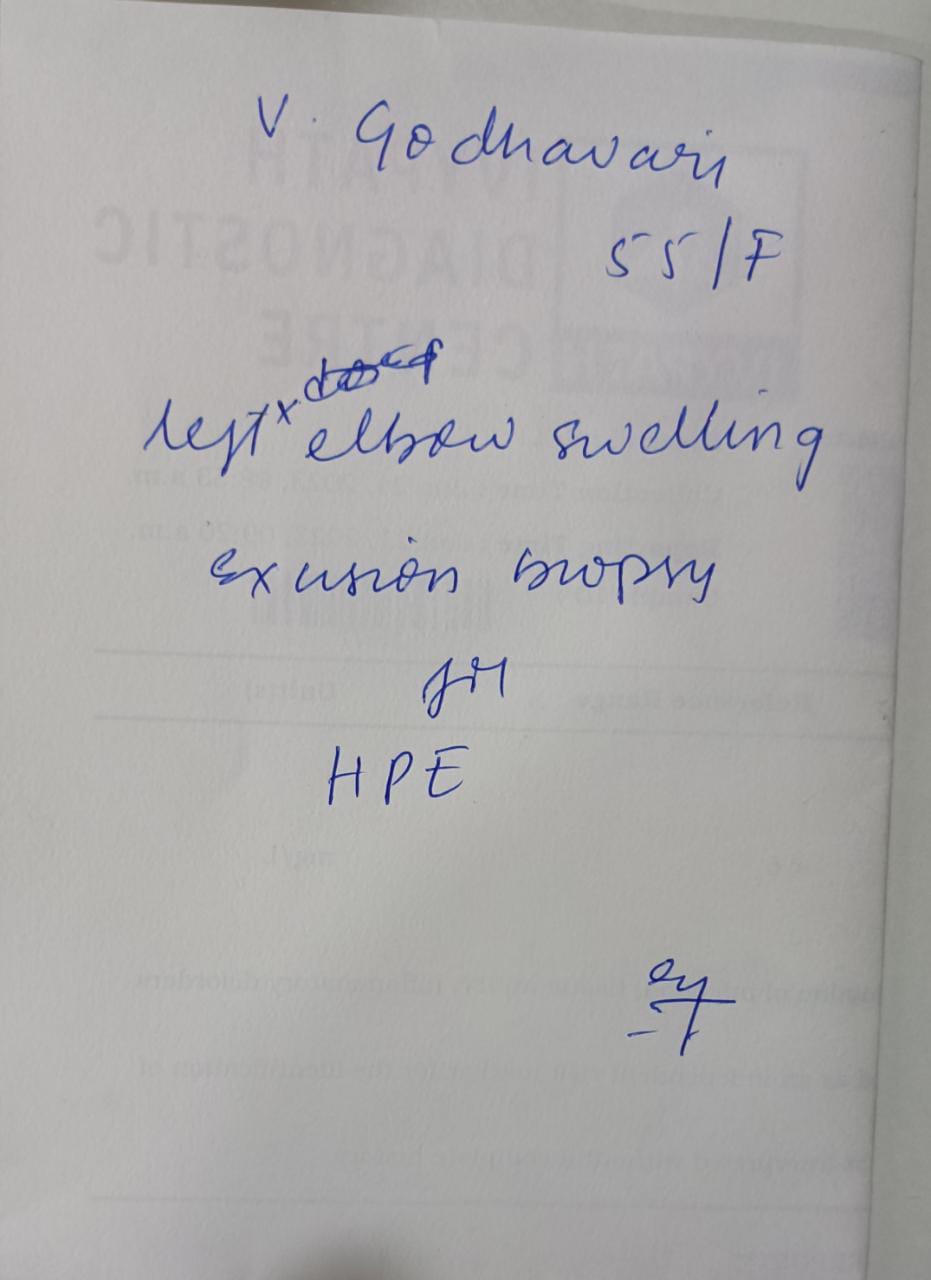 V. Godhavari
55/F
left x elbow swelling
Excision biopsy
for
HPE